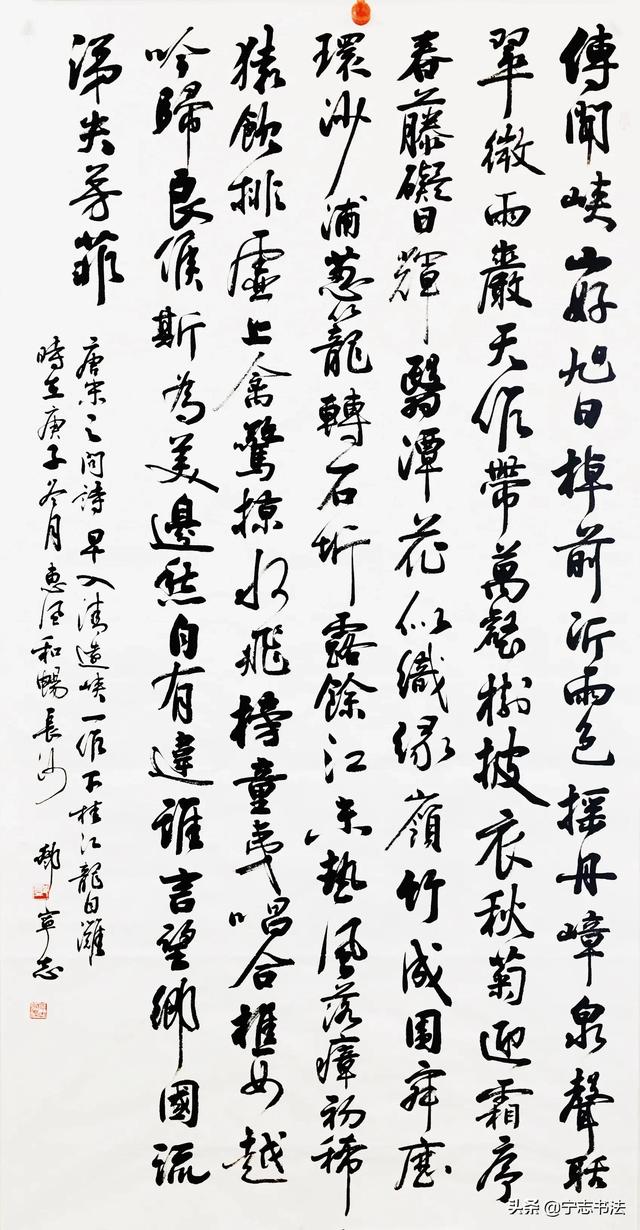 傳聞峽山好旭日棹前沂雨色採丹嶂泉聲聒
翠微雨嚴天作帶萬壑樹披衣秋菊迎霜序
春藤礙日輝翳潭花似織緣嶺竹成圍寂歷
環沙浦蔥蘢轉石圻露餘江未熱風落瘴初稀
猿飲排虛上禽驚掠水飛榜童夷唱合樵女越
吟歸良候斯為美邊愁自有違誰言望鄉國流
涕失芳菲
唐宋之問詩早入清遠峽一作下桂江龍目灘
時在庚子冬月惠風和暢長沙鄧寧志
头条 @宁志书法